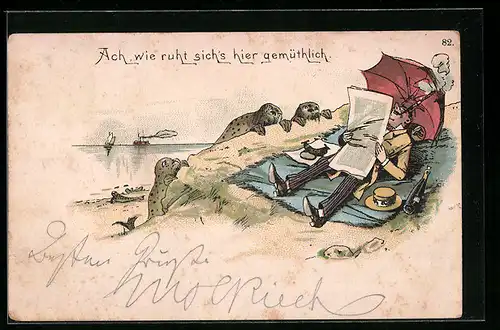 82.
Ach, wie ruht sich's hier gemüthlich.
Besten